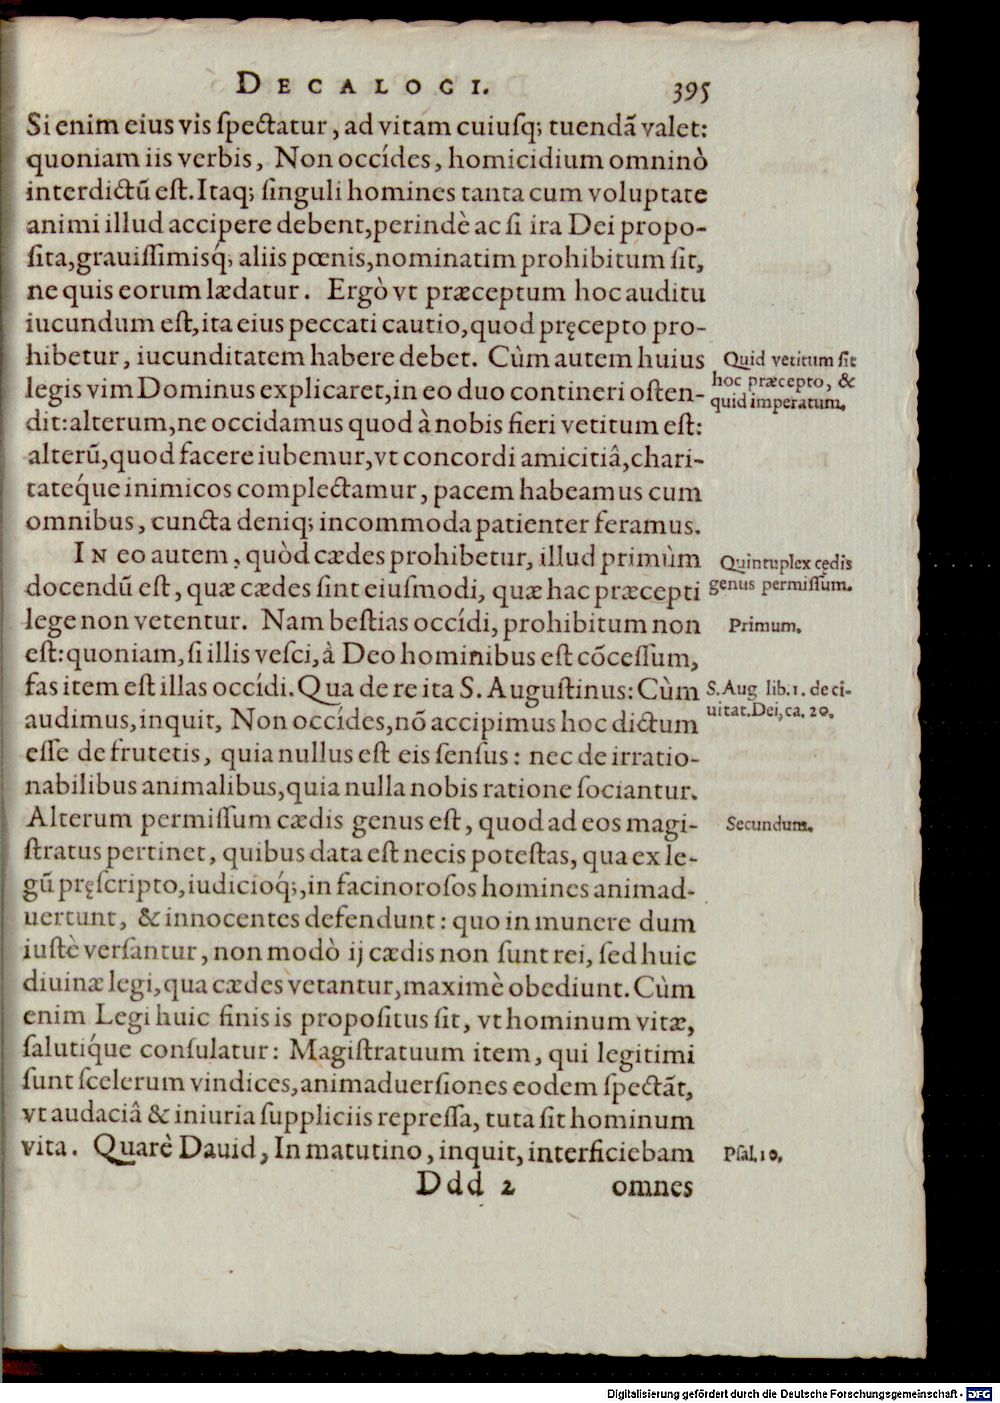 DECALOGI. 395
Si enim eius vis ſpectatur, ad vitam cuiuſq; tuendã valet:
quoniam iis verbis, Non occídes, homicidium omninò
interdictũ eſt. Itaq; ſinguli homines tanta cum voluptate
animi illud accipere debent, perindè ac ſi ira Dei propo-
ſita, grauiſſimisq́; aliis pœnis, nominatim prohibitum ſit,
ne quis eorum lædatur. Ergò vt præceptum hoc auditu
iucundum eſt, ita eius peccati cautio, quod pręcepto pro-
hibetur, iucunditatem habere debet. Cùm autem huius
legis vim Dominus explicaret, in eo duo contineri oſten-
dit: alterum, ne occidamus quod à nobis fieri vetitum eſt:
alterũ, quod facere iubemur, vt concordi amicitiâ, chari-
tateq́ue inimicos complectamur, pacem habeamus cum
omnibus, cuncta deniq; incommoda patienter feramus.
Quid vetitum ſit
hoc præcepto, &
quid imperatum.
IN eo autem, quòd cædes prohibetur, illud primùm
docendũ eſt, quæ cædes ſint eiuſmodi, quæ hac præcepti
lege non vetentur. Nam beſtias occídi, prohibitum non
eſt: quoniam, ſi illis veſci, à Deo hominibus eſt cõceſſum,
fas item eſt illas occídi. Qua de re ita S. Auguſtinus: Cùm
audimus, inquit, Non occídes, nõ accipimus hoc dictum
eſſe de frutetis, quia nullus eſt eis ſenſus: nec de irratio-
nabilibus animalibus, quia nulla nobis ratione ſociantur.
Alterum permiſſum cædis genus eſt, quod ad eos magi-
ſtratus pertinet, quibus data eſt necis poteſtas, qua ex le-
gũ pręſcripto, iudicioq́;, in facinoroſos homines animad-
uertunt, & innocentes defendunt: quo in munere dum
iuſtè verſantur, non modò ij cædis non ſunt rei, ſed huic
diuinæ legi, qua cædes vetantur, maximè obediunt. Cùm
enim Legi huic finis is propoſitus ſit, vt hominum vitæ,
ſalutiq́ue conſulatur: Magiſtratuum item, qui legitimi
ſunt ſcelerum vindices, animaduerſiones eodem ſpectãt,
vt audaciâ & iniuria ſuppliciis repreſſa, tuta ſit hominum
vita. Quarè Dauid, In matutino, inquit, interficiebam
Quintuplex cędis
genus permiſſum.
Primum.
S. Aug lib. 1. de ci-
uitat. Dei, ca. 20.
Secundum.
Pſal. 10.
Ddd 2 omnes
Digitalisierung gefördert durch die Deutsche Forschungsgemeinschaft - DFG